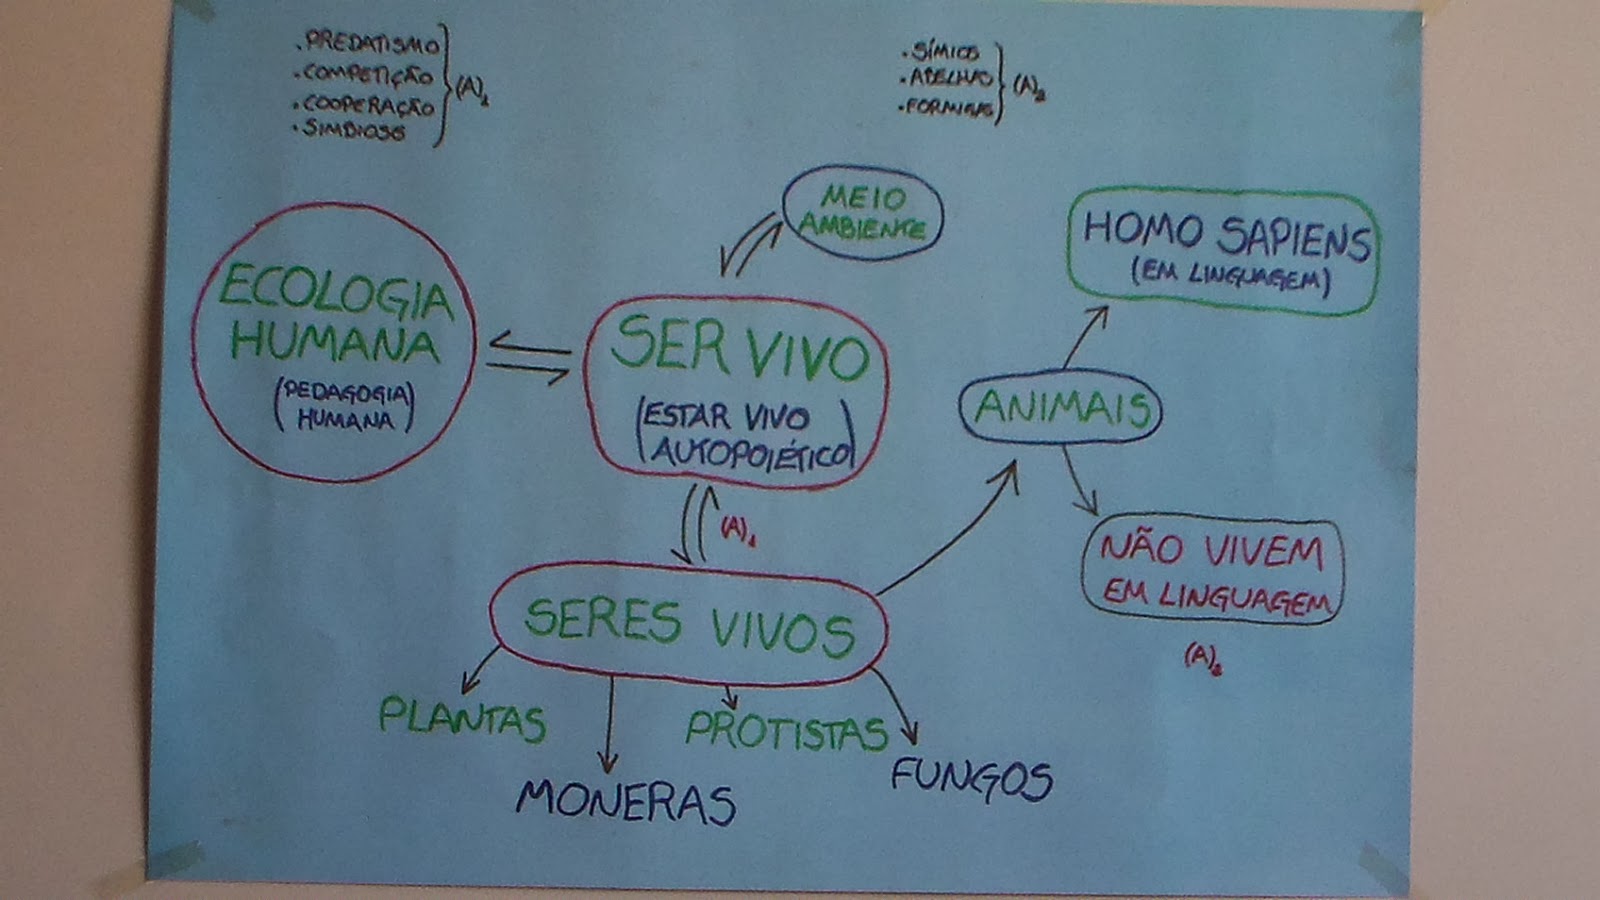 .PREDATISMO
.COMPETIÇÃO
.COOPERAÇÃO
.SIMBIOSE
(A)1
.SÍMIOS
.ABELHAS
.FORMIGAS
(A)2
MEIO
AMBIENTE
HOMO SAPIENS
(EM LINGUAGEM)
ECOLOGIA
HUMANA
(PEDAGOGIA
HUMANA)
SER VIVO
(ESTAR VIVO
AUTOPOIÉTICO)
ANIMAIS
(A)1
NÃO VIVEM
EM LINGUAGEM
(A)2
SERES VIVOS
PLANTAS
PROTISTAS
MONERAS
FUNGOS